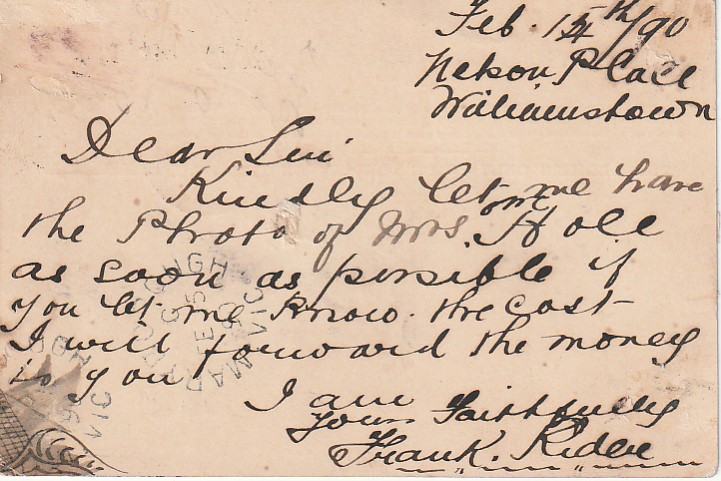 Feb. 15th/90
Nelson Place
Williamstown
Dear Sir
Kindly let me have
the Photo of Mrs. Hall
as soon as possible if
you let me know the cost
I will forward the money
to you
I am
Yours Faithfully
Frank. Rider
MA 5
90
VIC
VIC